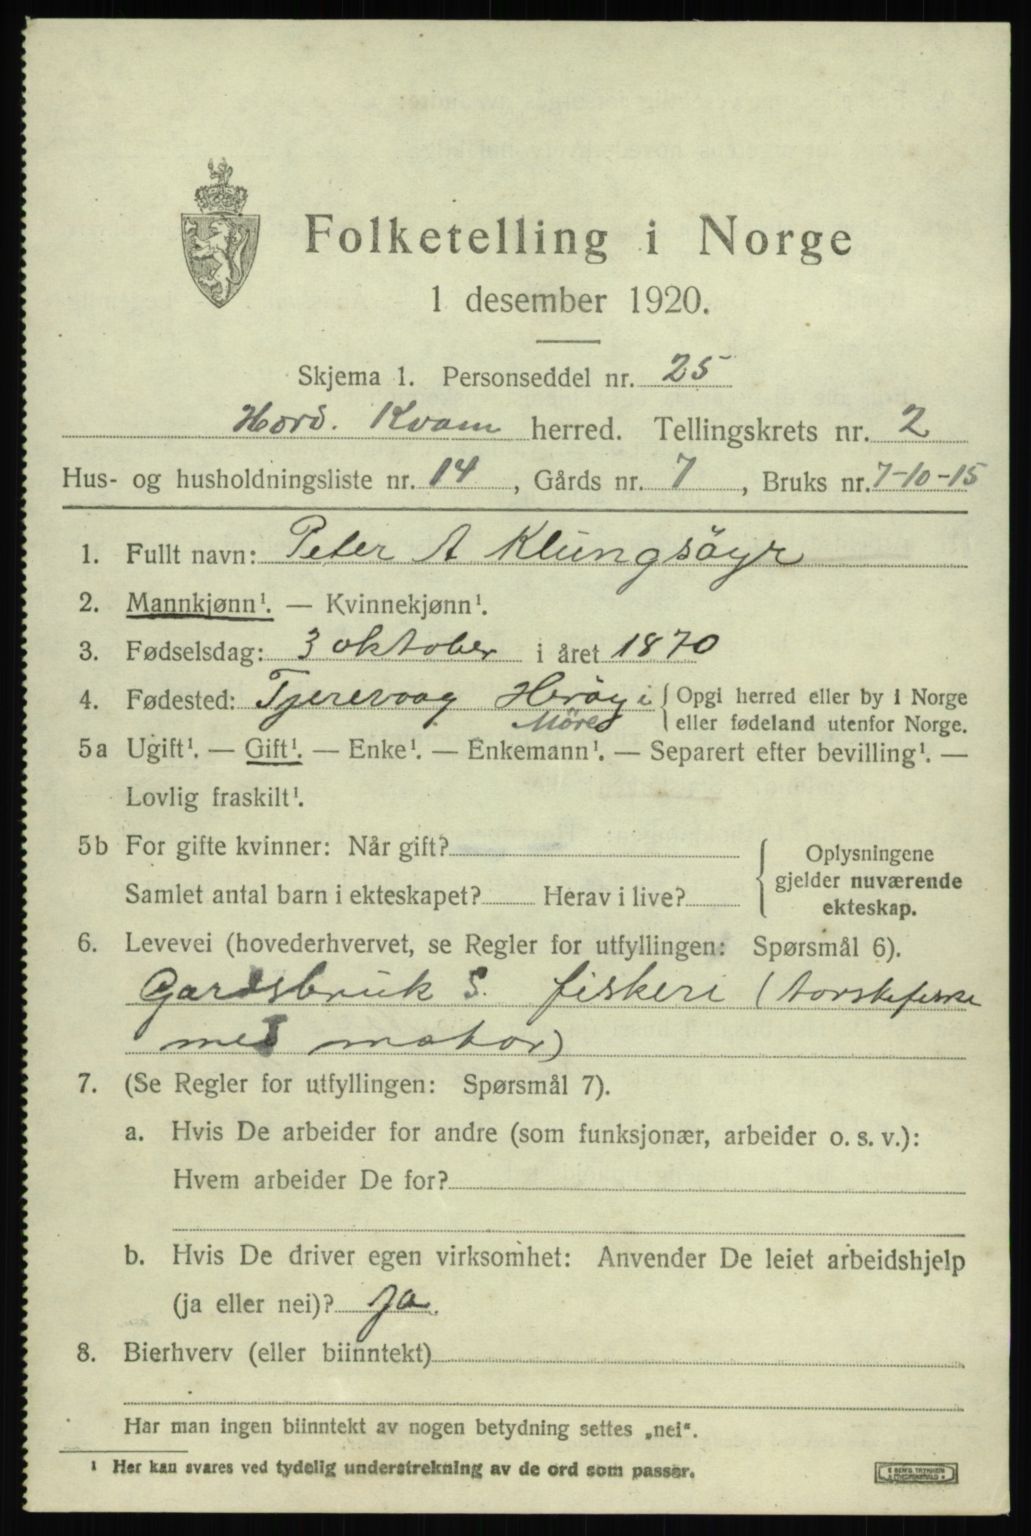 Folketelling i Norge
1 desember 1920.
Skjema 1. Personseddel nr. 25
Hord. Kvam herred. Tellingskrets nr. 2
Hus- og husholdningsliste nr. 14, Gårds nr. 7, Bruks nr. 7-10-15
1. Fullt navn: Peter A Klungsöyr
2. Mannkjønn¹. — Kvinnekjønn¹.
3. Fødselsdag: 3 oktober i året 1870
4. Fødested: Tjerevaag Heröy i { Opgi herred eller by i Norge
Møre { eller fødeland utenfor Norge.
5a Ugift¹. — Gift¹. — Enke¹. — Enkemann¹. — Separert efter bevilling¹. —
Lovlig fraskilt¹.
5b For gifte kvinner: Når gift?
Samlet antal barn i ekteskapet? Herav i live?
Oplysningene
gjelder nuværende
ekteskap.
6. Levevei (hovederhvervet, se Regler for utfyllingen: Spørsmål 6).
Gardsbruk S. fiskeri (torskefiske
med motor)
7. (Se Regler for utfyllingen: Spørsmål 7).
a. Hvis De arbeider for andre (som funksjonær, arbeider o. s. v.):
Hvem arbeider De for?
b. Hvis De driver egen virksomhet: Anvender De leiet arbeidshjelp
(ja eller nei)? ja.
8. Bierhverv (eller biinntekt)
Har man ingen biinntekt av nogen betydning settes „nei“.
¹ Her kan svares ved tydelig understrekning av de ord som passer.